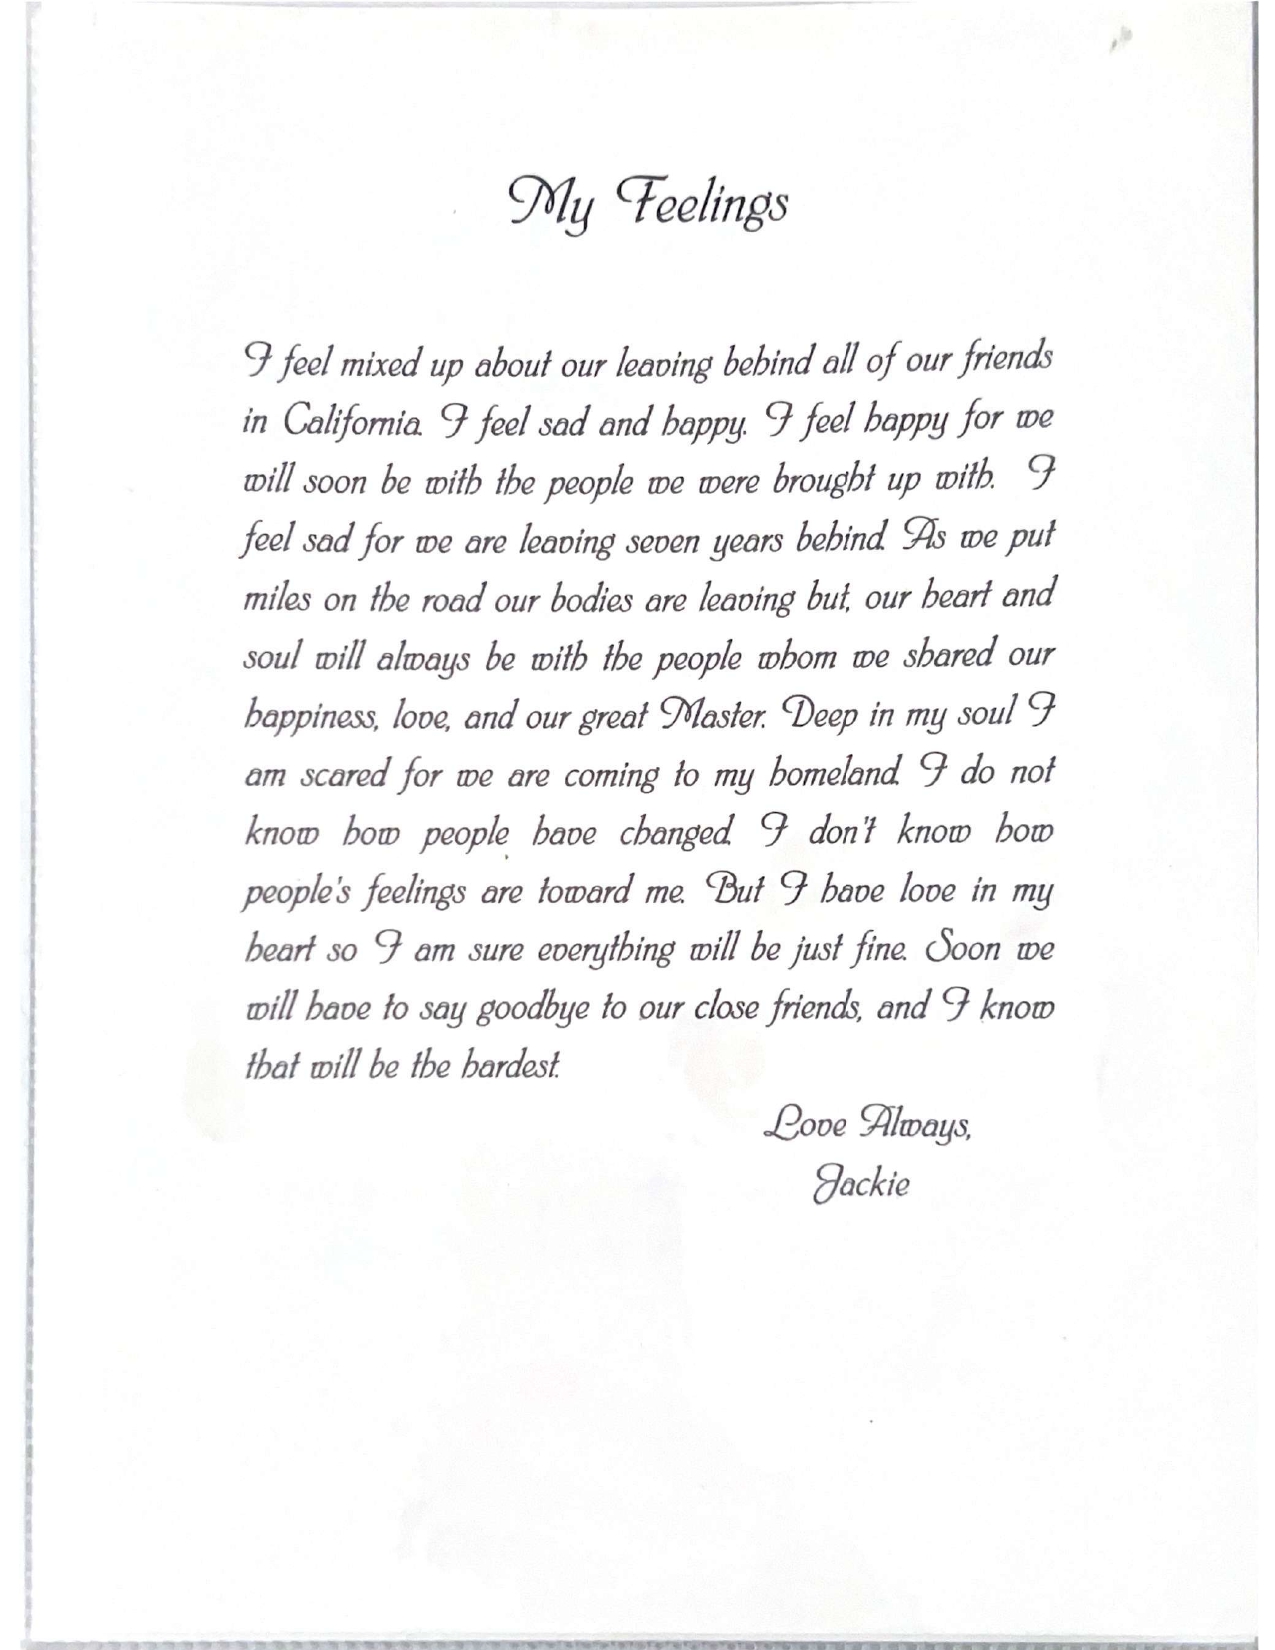 My Feelings
I feel mixed up about our leaving behind all of our friends
in California. I feel sad and happy. I feel happy for we
will soon be with the people we were brought up with. I
feel sad for we are leaving seven years behind. As we put
miles on the road our bodies are leaving but, our heart and
soul will always be with the people whom we shared our
happiness, love, and our great Master. Deep in my soul I
am scared for we are coming to my homeland. I do not
know how people have changed. I don't know how
people's feelings are toward me. But I have love in my
heart so I am sure everything will be just fine. Soon we
will have to say goodbye to our close friends, and I know
that will be the hardest.
Love Always,
Jackie